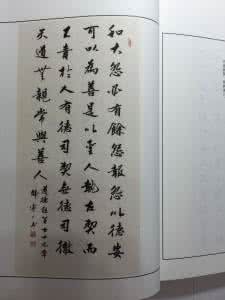 和大怨必有餘怨報怨以德安
可以為善是以聖人執左契而
不責於人有德司契無德司徹
天道無親常與善人 道德經第七十九章